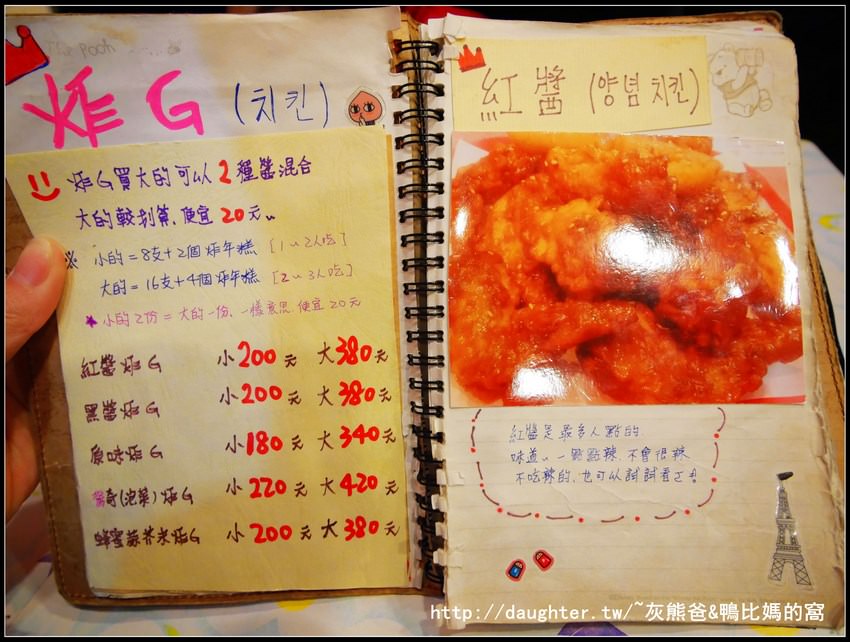 The pooh
炸G (치킨)
炸G買大的可以2種醬混合
大的較划算、便宜20元~
※ 小的=8支+2個炸年糕 [1~2人吃]
大的=16支+4個炸年糕 [2~3人吃]
★小的2份=大的一份、一樣意思、便宜20元
紅醬炸G 小200元 大380元
黑醬炸G 小200元 大380元
原味炸G 小180元 大340元
奇(泡菜)炸G 小220元 大420元
蜂蜜蒜芥末炸G 小200元 大380元
紅醬 (양념치킨)
紅醬是最多人點的
味道~一點點辣、不會很辣
不吃辣的、也可以試試看
http://daughter.tw/~灰熊爸&鴨比媽的窩